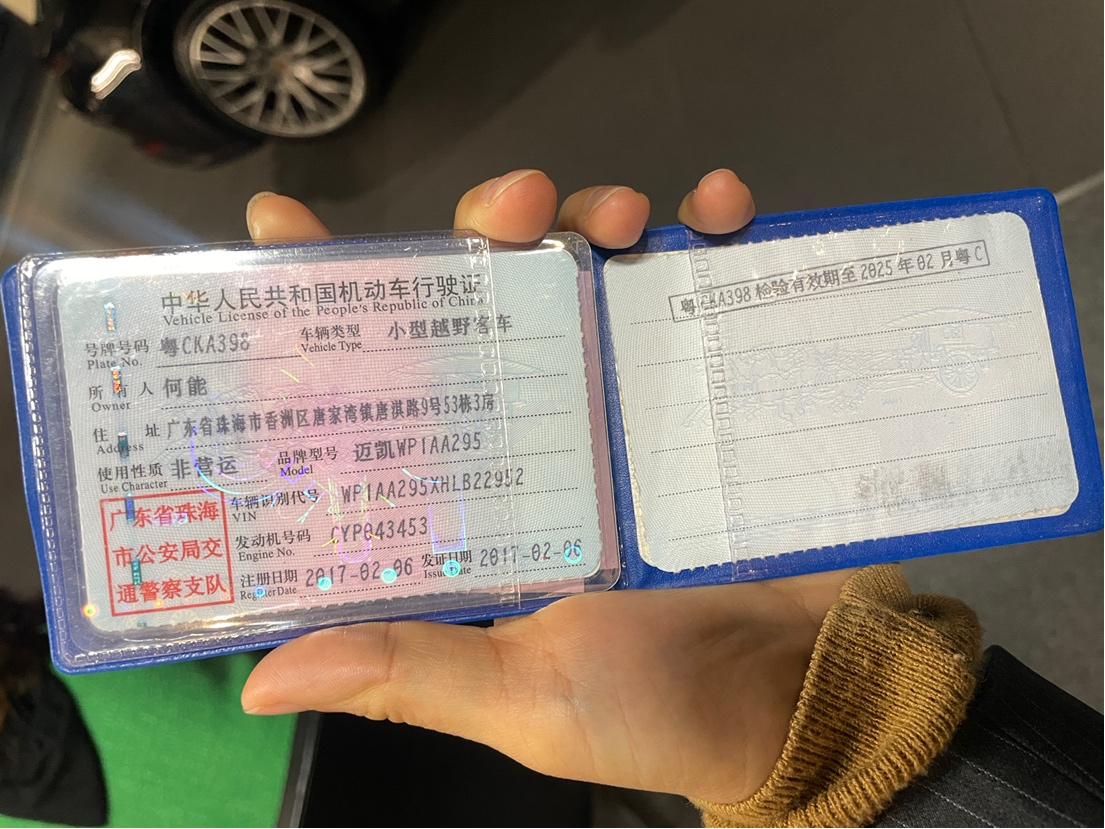 中华人民共和国机动车行驶证
Vehicle License of the People's Republic of China
号牌号码 粤CKA398 车辆类型 小型越野客车
Plate No. Vehicle Type
所有人 何能
Owner
住址 广东省珠海市香洲区唐家湾镇唐淇路9号53栋3房
Address
使用性质 非营运 品牌型号 迈凯WP1AA295
Use Character Model
车辆识别代号 WP1AA295XHLB22952
VIN
发动机号码 CYP043453
Engine No.
注册日期 2017-02-06 发证日期 2017-02-06
Register Date Issue Date
广东省珠海
市公安局交
通警察支队
粤CKA398 检验有效期至 2025 年 02 月粤 C